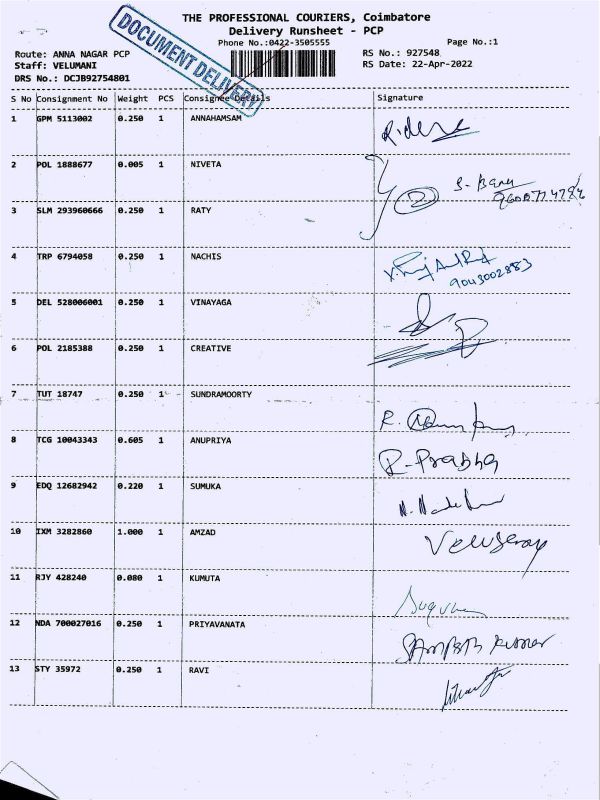 THE PROFESSIONAL COURIERS, Coimbatore
Delivery Runsheet - PCP
Phone No.:0422-3505555 Page No.:1
Route: ANNA NAGAR PCP RS No.: 927548
Staff: VELUMANI RS Date: 22-Apr-2022
DRS No.: DCJB92754801
DOCUMENT DELIVERY
S No Consignment No Weight PCS Consignee Details Signature
1 GPM 5113002 0.250 1 ANNAHAMSAM
2 POL 1888677 0.005 1 NIVETA
3 SLM 293960666 0.250 1 RATY
4 TRP 6794058 0.250 1 NACHIS
9043002883
5 DEL 528006001 0.250 1 VINAYAGA
6 POL 2185388 0.250 1 CREATIVE
7 TUT 18747 0.250 1 SUNDRAMOORTY
8 TCG 10043343 0.605 1 ANUPRIYA R-Prabha
9 EDQ 12682942 0.220 1 SUMUKA
10 IXM 3282860 1.000 1 AMZAD
11 RJY 428240 0.080 1 KUMUTA
12 NDA 700027016 0.250 1 PRIYAVANATA
13 STY 35972 0.250 1 RAVI